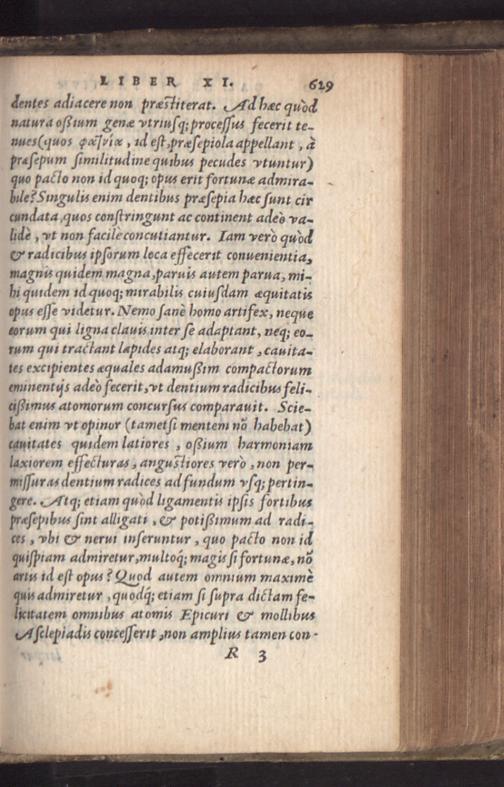 LIBER XI. 629
dentes adiacere non præstiterat. Ad hæc quòd
natura oßium genæ vtriusq; processus fecerit te-
nues (quos φατνία, id est, præsepiola appellant, à
præsepum similitudine quibus pecudes vtuntur)
quo pacto non id quoq; opus erit fortunæ admira-
bile? Singulis enim dentibus præsepia hæc sunt cir
cundata, quos constringunt ac continent adeò va-
lidè, vt non facile concutiantur. Iam verò quòd
& radicibus ipsorum loca effecerit conuenientia,
magnis quidem magna, paruis autem parua, mi-
hi quidem id quoq; mirabilis cuiusdam æquitatis
opus esse videtur. Nemo sanè homo artifex, neque
eorum qui ligna clauis inter se adaptant, neq; eo-
rum qui tractant lapides atq; elaborant, cauita-
tes excipientes æquales adamußim compactorum
eminentijs adeò fecerit, vt dentium radicibus feli-
cißimus atomorum concursus comparauit. Scie-
bat enim vt opinor (tametsi mentem nō habebat)
cauitates quidem latiores, oßium harmoniam
laxiorem effecturas, angustiores verò, non per-
missuras dentium radices ad fundum vsq; pertin-
gere. Atq; etiam quòd ligamentis ipsis fortibus
præsepibus sint alligati, & potißimum ad radi-
ces, vbi & nerui inseruntur, quo pacto non id
quispiam admiretur, multoq́; magis si fortunæ, nō
artis id est opus? Quod autem omnium maximè
quis admiretur, quodq́; etiam si supra dictam fe-
licitatem omnibus atomis Epicuri & mollibus
Asclepiadis concesserit, non amplius tamen con-
R 3